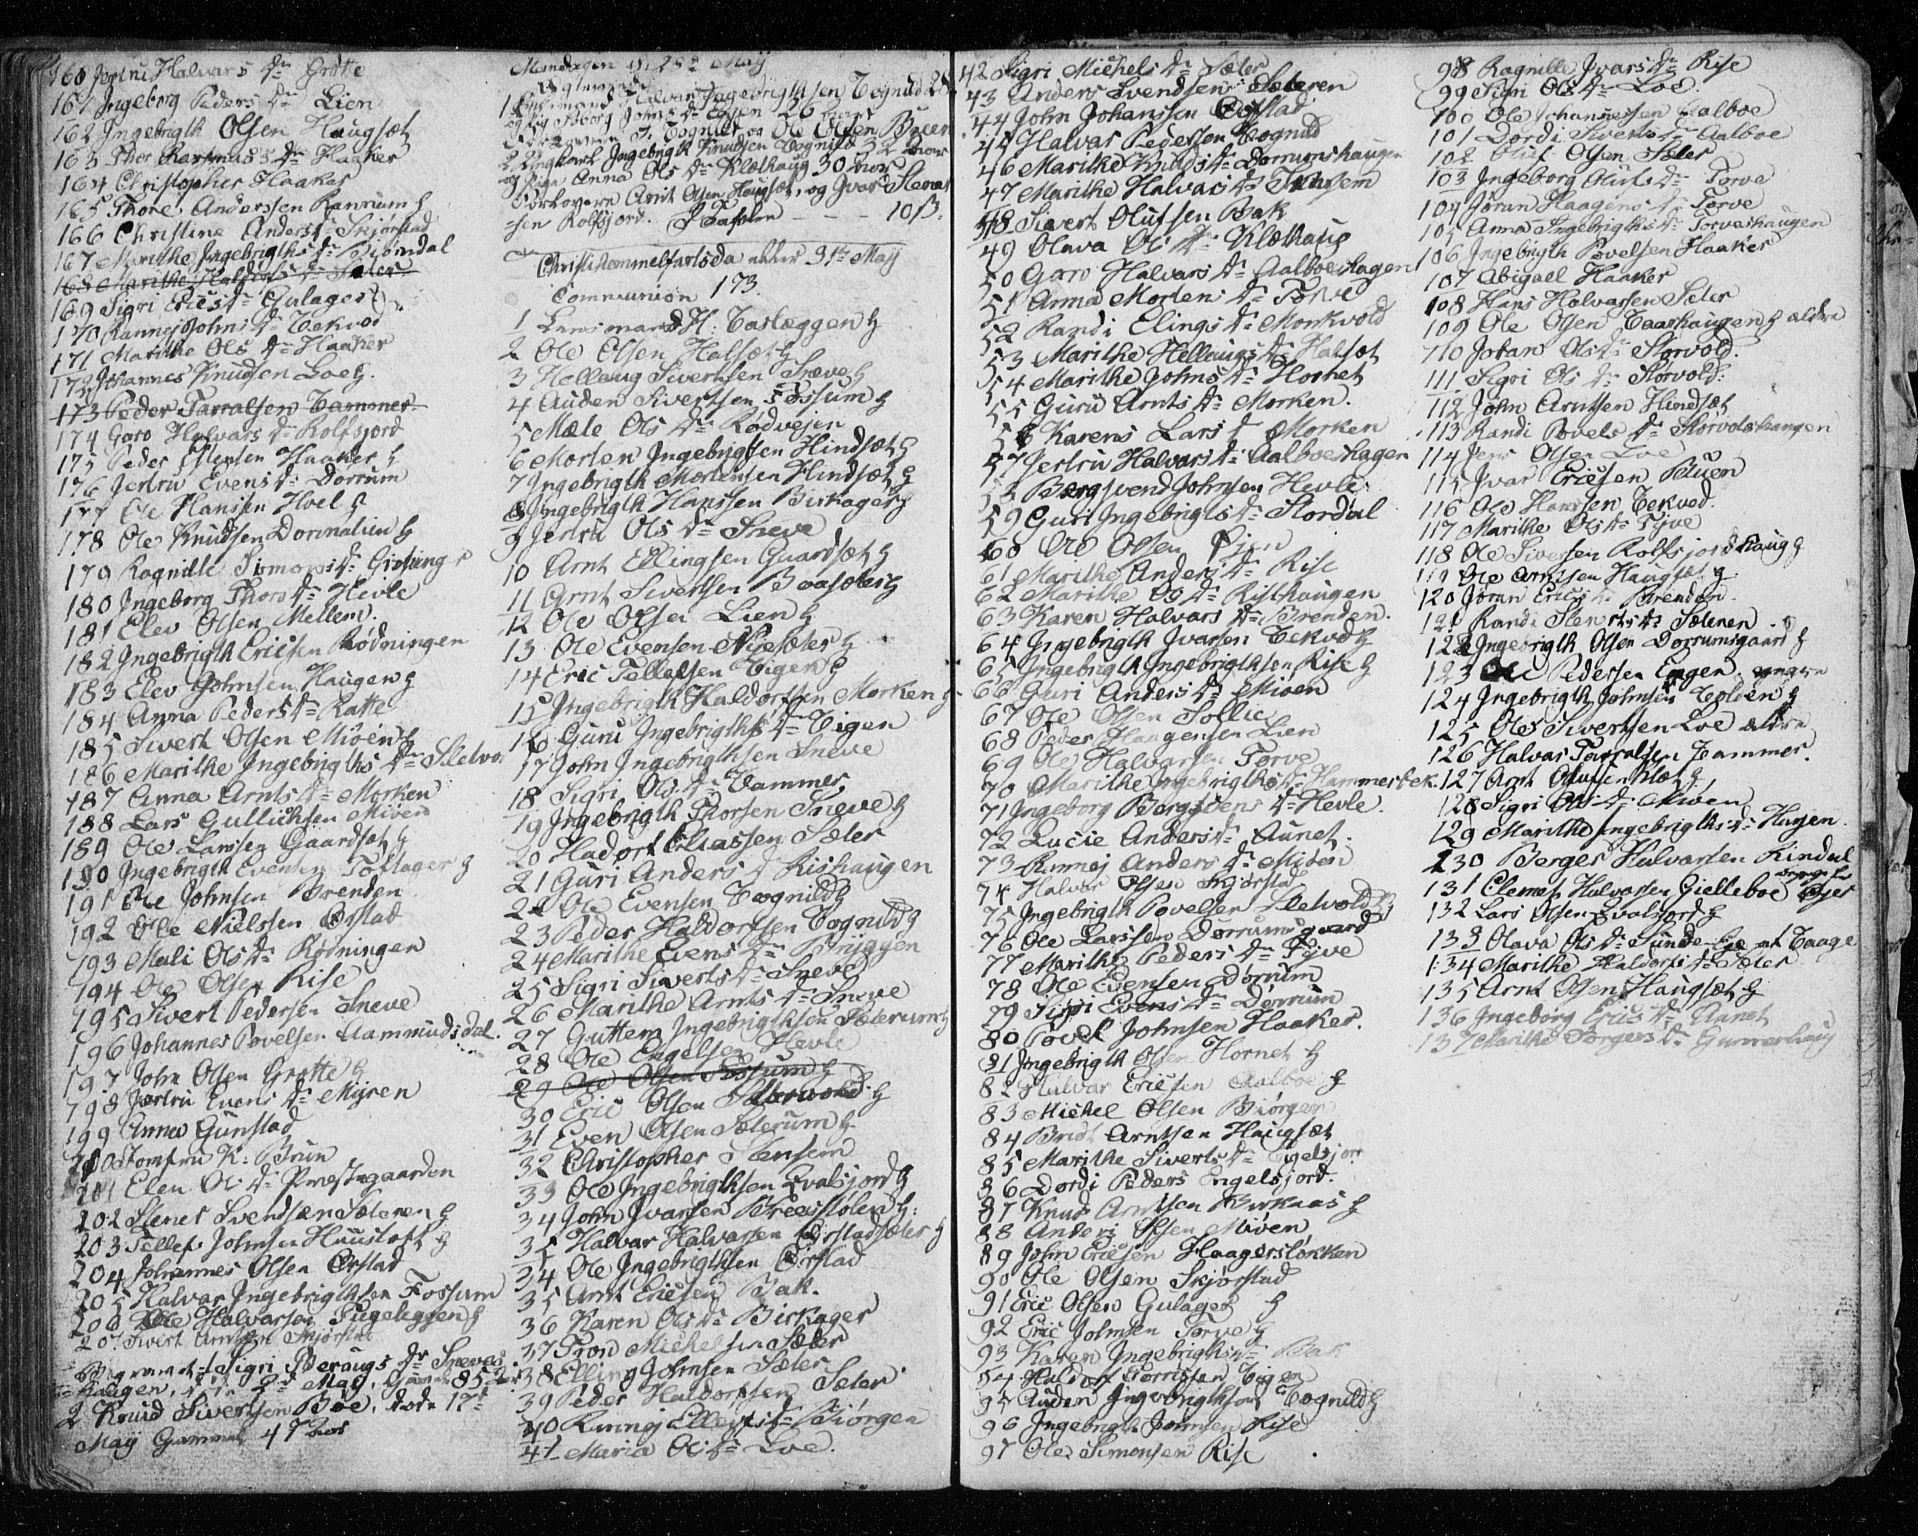 160 Jertru Halvars Dr. Grøtte
161 Ingeborg Peders Dr. Lien
162 Ingebrigth Olsen Haugsæt
163 Thor Rasmus Dr. Haaker
164 Christopher Haaker
165 Thore Anderssen Ranrum
166 Christine Anders Skjørstad
167 Marithe Ingebrigths Dr. Biørndal
168 Marithe Haldors Dr. Sæter
169 Sigri Erics Dr. Gulager
170 Rannej Johns Dr. Tekvod
171 Marithe Ols Dr. Haaker
172 Johannes Knudsen Loe
173 Peder Tarralsen Tammer
174 Goro Halvars Dr. Rolfsjord
175 Peder Estensen Haaker
176 Jertru Evens Dr. Dorrum
177 Ole Hansen Hoel
178 Ole Knudsen Donnalien
179 Ragnille Simons Dr.
180 Ingeborg Thors Dr. Hevle
181 Elev Olsen Mellem
182 Ingebrigth Ericsen Rødningen
183 Elev Johnsen Haugen
184 Anna Peders Dr. Ratte
185 Sivert Olsen Mioen
186 Marithe Ingebrigths Dr. Sletvo
187 Anna Arnts Dr. Morken
188 Lars Gullichsen Mioen
189 Ole Larssen Gaardsæt
190 Ingebrigth Evensen Toftager
191 Ole Johnsen Brenden
192 Ole Nielssen Ørstad
193 Mali Ols Dr. Rødningen
194 Ole Olsen Rise
195 Sivert Pedersen Sneve
196 Johannes Povelsen Aammundsdal
197 John Olsen Grøtte
198 Jertru Evens Dr. Mijren
199 Anna Gunstad
200 Jomfru K: Brun
201 Elen Ols Dr. Præstegaarden
202 Stener Svendsen Sæteren
203 Tellef Johnsen Huustoft
204 Johannes Olsen Ørstad
205 Halvar Ingebrigthsen Fossum
206 Ole Halvarsen
207 Sivert Arntsen Skjørstad
Sigri Dr. Sneves
haugen, 2d May, 85
2 Knud Sivertsen Bøe, dødn 17d
Maij Gammel 47 aar
Mandagen d. 28d Maij
Halvar Ingebrigthsen Tognild 28
og Pig Johns Dr. 26
Forlovere Tognild og Ole Olsen
2 Ungkarl Ingebrigth Knudsen Tognild 32 aar
og Pige Anna Ols Dr. Klæthaug 30 aar
Forlovere Arnt Olsen Haugsæt, og Ivar Stenersen Rolfsjord. 10 ß
Christi Himmelfartsda eller 31te Maij
Communion 173
1 Lensmand H: Taxleggen
2 Ole Olsen Halsæt
3 Hellaug Sivertsen Sneve
4 Auden Sivertsen Fossum
5 Mæle Ols Dr. Rødvejen
6 Morten Ingebrigtsen Hindsæt
7 Ingebrigth Mortensen Hindsæt
8 Ingebrigth Hanssen Birkager
9 Jertru Ols Dr. Sneve
10 Arnt Ellingsen Gaardsæt
11 Arnt Sivertsen
12 Ole Olsen Lien
13 Ole Evensen Nijesæter
14 Eric Tellefsen Eigen
15 Ingebrigth Haldorssen Morken
16 Guru Ingebrigths Dr. Eigen
17 John Ingebrigthsen Sneve
18 Sigri Ols Dr. Tammer
19 Ingebrigth Thorsen Sneve
20 Hadort Eliassen Sæter
21 Guri Anders Dr. Rishaugen
22 Ole Evensen Tognild
23 Peder Haldorssen Tognild
24 Marithe Evens Dr. Brijggen
25 Sigri Siverts Dr. Sneve
26 Marithe Arnts Dr. Sneve
27 Guttem Ingebrigthsen Sæterum
28 Ole Engelsen Hevle
29 Ole Olsen Fossum
30 Eric Olsen
31 Even Olsen Sæterum
32 Christopher Stensem
33 Ole Ingebrigthsen Evalsjord
34 John Ivarsen Breestølen
35 Halvar Halvarsen Ørstadsæter
34 Ole Ingebrigthsen Ørstad
35 Arnt Ericsen Bak
36 Karen Ols Dr. Birkager
37 Tron Michelsen Sæter
38 Elling Johnsen Sæter
39 Peder Haldorssen Sæter
40 Rannej Ellefs Dr. Biørgen
41 Maria Ols Dr. Loe
42 Sigri Michels Dr. Sæter
43 Anders Svendsen Sæteren
44 John Johanssen Ørstad
45 Halvar Pedersen Tognild
46 Marithe Knuds Dr. Dorrumshaugen
47 Marithe Halvars Dr. Stensem
48 Sivert Olufsen Bak
49 Olava Ols Dr. Klæthaug
50 Goro Halvars Dr. Aalboeshagen
51 Anna Mortens Dr. Torve
52 Randi Elings Dr. Morkvold
53 Marithe Hellaugs Dr. Halsæt
54 Marithe Johns Dr. Hornet
55 Guru Arnts Dr. Morken
56 Karen Lars Dr. Morken
57 Jertru Halvars Dr. Aalboeshagen
58 Bergsvend Johnsen Hevle
59 Guri Ingebrigts Dr. Stordal
60 Ole Olsen
61 Marithe Anders Dr. Rise
62 Marithe Ols Dr. Risthaugen
63 Karen Halvars Dr. Brenden
64 Ingebrigth Ivarsen Tekvod
65 Ingebrigth Ingebrigthsen Rise
66 Guri Anders Dr. Mioen
67 Ole Olsen Sollie
68 Peder Haugensen Lien
69 Ole Halvarsen Torve
70 Marithe Ingebrigths Dr. Hammerbek
71 Ingeborg Bergsvens Dr. Hevle
72 Lucie Anders Dr. Aunet
73 Rannej Anders Dr. Mioen
74 Halvar Olsen Skjørstad
75 Ingebrigth Povelsen Sletvold
76 Ole Larssen Dorrumsgaard
77 Marithe Peders Dr. Tyve
78 Ole Evensen Dorrum
79 Sigri Evens Dr. Dorrum
80 Povel Johnsen Haaker
81 Ingebrigth Olsen Hornet
82 Halvar Ericsen Aalboe
83 Michel Olsen Biørgen
84 Brudt Arntsen Haugsæt
85 Marithe Siverts Dr. Engelsjor
86 Dordi Peders Engelsjord
87 Knud Arntsen Birkaas
88 Anders Olsen Mioen
89 John Ericsen Haagersløkken
90 Ole Olsen Skjørstad
91 Eric Olsen Gulager
92 Eric Johnsen Torve
93 Karen Ingebrigths Dr. Bak
94 Haldor Torrissen Eigen
95 Auden Ingebrigthsen Tognild
96 Ingebrigth Johnsen Rise
97 Ole Simonsen Rise
98 Ragnille Ivars Dr. Rise
99 Sigri Ols Dr. Loe
100 Ole Johannessen Aalboe
101 Dordi Siverts Dr. Aalboe
102 Oluf Olsen Sæter
103 Ingeborg Olufs Dr. Torve
104 Jøran Haagens Dr. Torve
105 Anna Ingebrigths Dr. Torveshaugen
106 Ingebrigth Povelsen Haaker
107 Abigael Haaker
108 Hans Halvarsen Sæter
109 Ole Olsen Taashaugen ældre
110 Johan Ols Dr. Storvold
111 Sigri Ols Dr. Storvold
112 John Arntsen Hindsæt
113 Randi Povels Dr. Storvolshaugen
114 Jens Olsen Loe
115 Ivar Ericsen Buen
116 Ole Hanssen Tekvod
117 Marithe Ols Dr. Tyve
118 Ole Siversen Rolfsjordshaug
119 Ole Arntsen Haugsæt
120 Jøran Erics Dr. Brenden
121 Randi Steners Dr. Sæteren
122 Ingebrigth Olsen Dorrumsgaard
123 Ole Pedersen Engen yngre
124 Ingebrigth Johnsen
125 Ole Sivertsen Loe ældre
126 Halvar Torralssen Tammer
127 Arnt Olufsen Klæt
128 Sigri Ols Dr. Mioen
129 Marithe Ingebrigths Dr. Hagen
130 Berges Halvarsen Rindal
131 Clemet Halvarsen Gielleboe
132 Lars Olsen Evalsjord
133 Olava Ols Dr. Sunde
134 Marithe Haldors Dr. Sæter
135 Arnt Olsen Haugsæt
136 Ingeborg Erics Dr. Aunet
137 Marithe Torgers Dr. Gunnerhaug